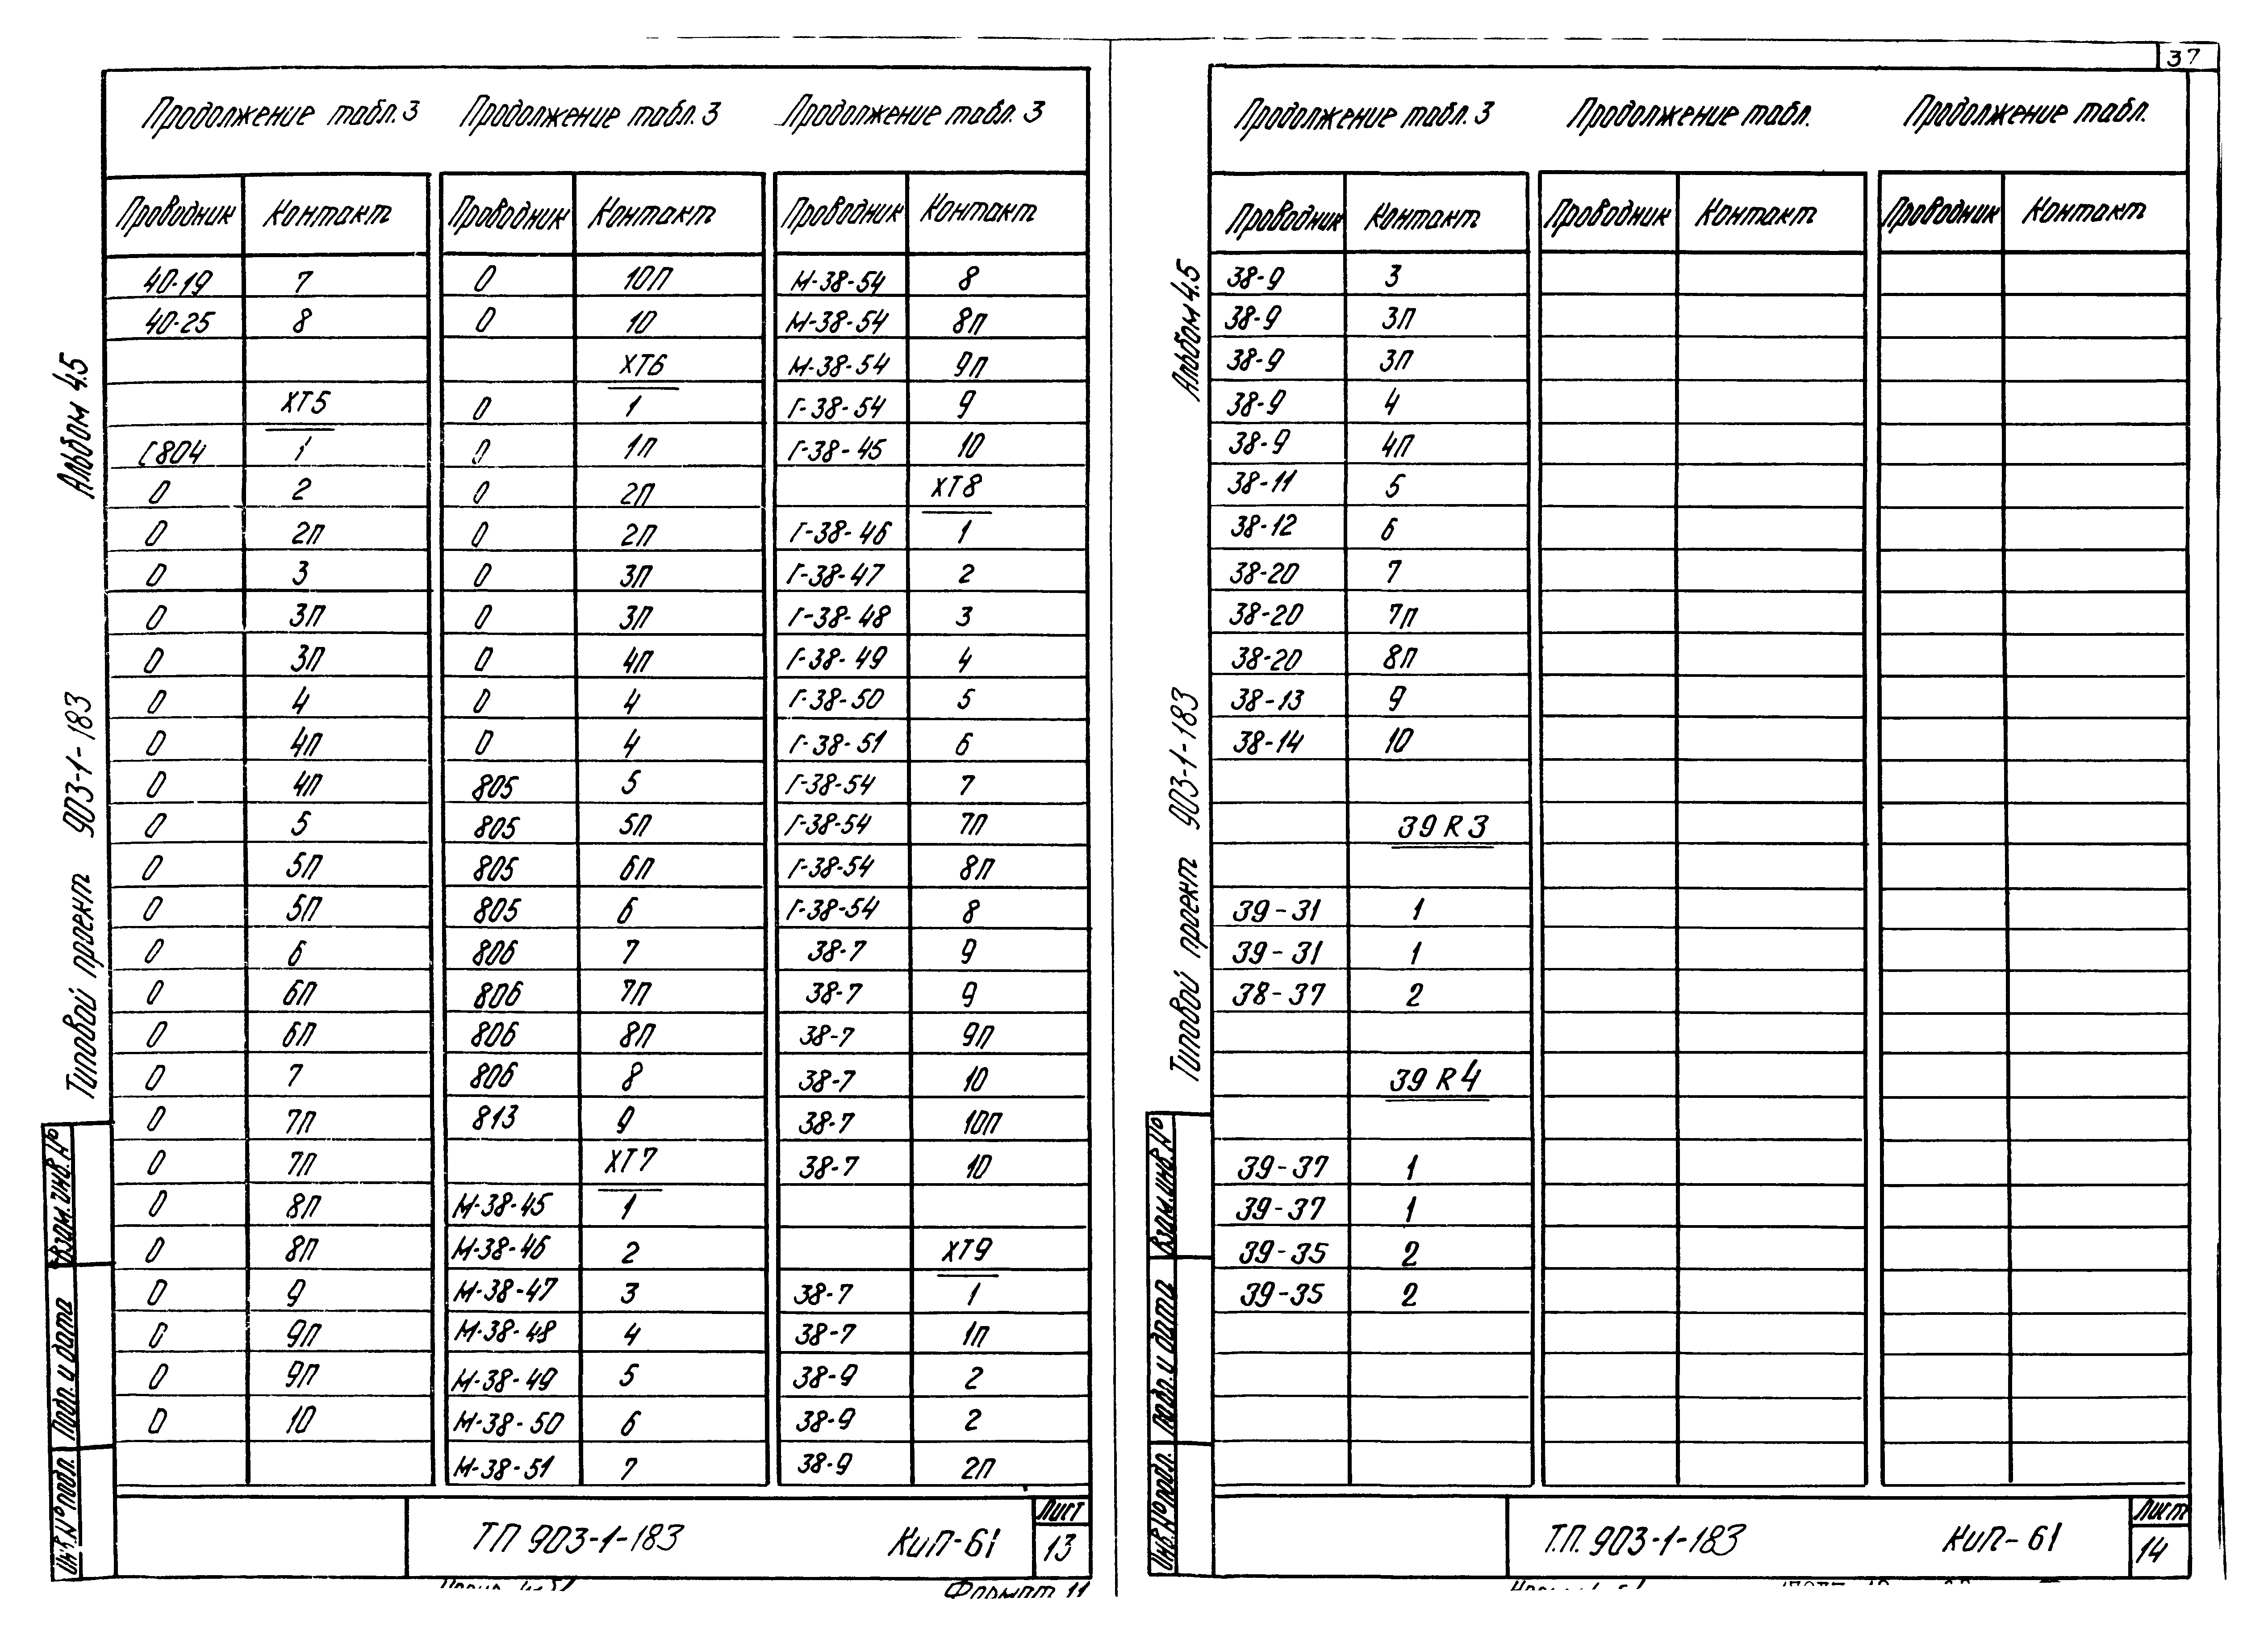 37
Продолжение табл. 3 Продолжение табл. 3 Продолжение табл. 3
Проводник Контакт Проводник Контакт Проводник Контакт
40-19 7 0 10П М-38-54 8
40-25 8 0 10 М-38-54 8П
ХТ6 М-38-54 9П
ХТ5 0 1 Г-38-54 9
С804 1 0 1П Г-38-45 10
0 2 0 2П ХТ8
0 2П 0 2П Г-38-46 1
0 3 0 3П Г-38-47 2
0 3П 0 3П Г-38-48 3
0 3П 0 4П Г-38-49 4
0 4 0 4 Г-38-50 5
0 4П 0 4 Г-38-51 6
0 4П 805 5 Г-38-54 7
0 5 805 5П Г-38-54 7П
0 5П 805 6П Г-38-54 8П
0 5П 805 6 Г-38-54 8
0 6 806 7 38-7 9
0 6П 806 7П 38-7 9
0 6П 806 8П 38-7 9П
0 7 806 8 38-7 10
0 7П 813 9 38-7 10П
0 7П ХТ7 38-7 10
0 8П М-38-45 1
0 8П М-38-46 2 ХТ9
0 9 М-38-47 3 38-7 1
0 9П М-38-48 4 38-7 1П
0 9П М-38-49 5 38-9 2
0 10 М-38-50 6 38-9 2
М-38-51 7 38-9 2П
ТП 903-1-183 КиП-61 Лист 13
Формат 11
Альбом 4.5
Типовой проект 903-1-183
Взам. инв. №
Подп. и дата
Инв. № подл.
Продолжение табл. 3 Продолжение табл. Продолжение табл.
Проводник Контакт Проводник Контакт Проводник Контакт
38-9 3
38-9 3П
38-9 3П
38-9 4
38-9 4П
38-11 5
38-12 6
38-20 7
38-20 7П
38-20 8П
38-13 9
38-14 10
39 R 3
39-31 1
39-31 1
38-37 2
39 R 4
39-37 1
39-37 1
39-35 2
39-35 2
Т.П. 903-1-183 КиП-61 Лист 14
Альбом 4.5
Типовой проект 903-1-183
Взам. инв. №
Подп. и дата
Инв. № подл.